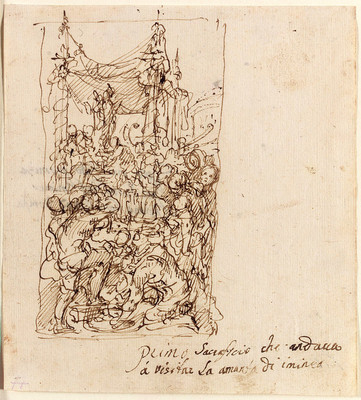 primo Sacrificio che andaua
á visitar La amanza di